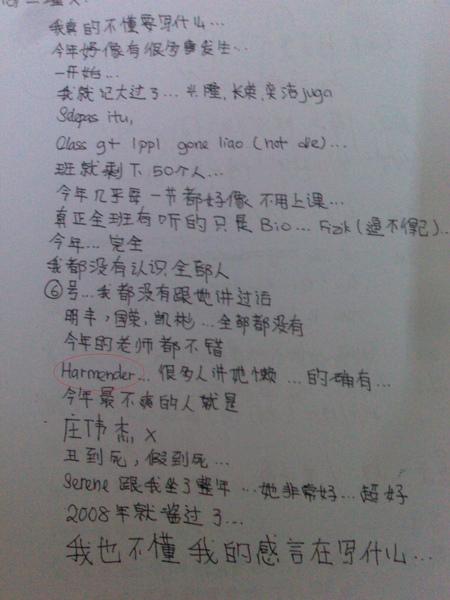 我真的不懂要写什么...
今年好像有很多事发生...
一开始...
我就记大过了...兴隆,长荣,奕洁juga
Sdepas itu,
Class gt 1ppl gone liao (not die)...
班就剩下50个人...
今年几乎每一节都好像不用上课...
真正全班有听的只是Bio... Fizik(逼不得已)...
今年...完全
我都没有认识全部人
⑥号...我都没有跟她讲过话
明丰,国荣,凯彬...全部都没有
今年的老师都不错
Harmender...很多人讲她懒...的确有...
今年最不爽的人就是
庄伟杰 x
丑到死,假到死...
Serene跟我坐了整年...她非常好...超好
2008年就酱过了...
我也不懂我的感言在写什么...